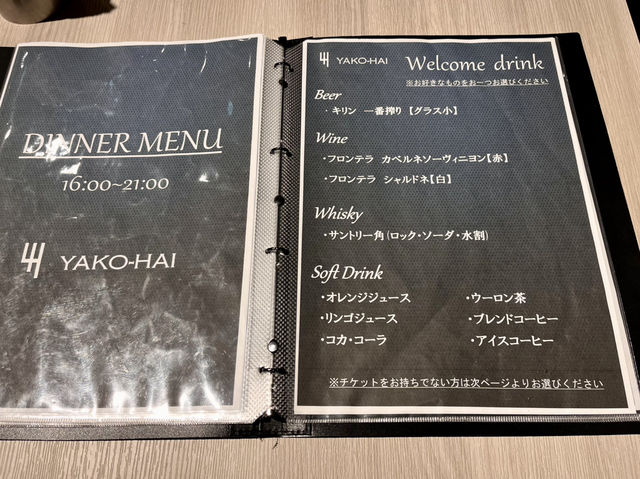 DINNER MENU
16:00~21:00
YAKO-HAI
YAKO-HAI
Welcome drink
※お好きなものをお一つお選びください
Beer
・キリン 一番搾り 【グラス小】
Wine
・フロンテラ カベルネソーヴィニヨン【赤】
・フロンテラ シャルドネ【白】
Whisky
・サントリー角(ロック・ソーダ・水割)
Soft Drink
・オレンジジュース
・ウーロン茶
・リンゴジュース
・ブレンドコーヒー
・コカ・コーラ
・アイスコーヒー
※チケットをお持ちでない方は次ページよりお選びください